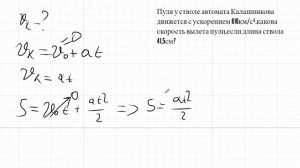 Vк-?
Vк = V₀ + at
Vк = at
S = V₀t + at²/2 => S = at²/2
0
0
Пуля у стволе автомата Калашникова
движется с ускорением 616км/с².какова
скорость вылета пули,если длина ствола
41,5см?